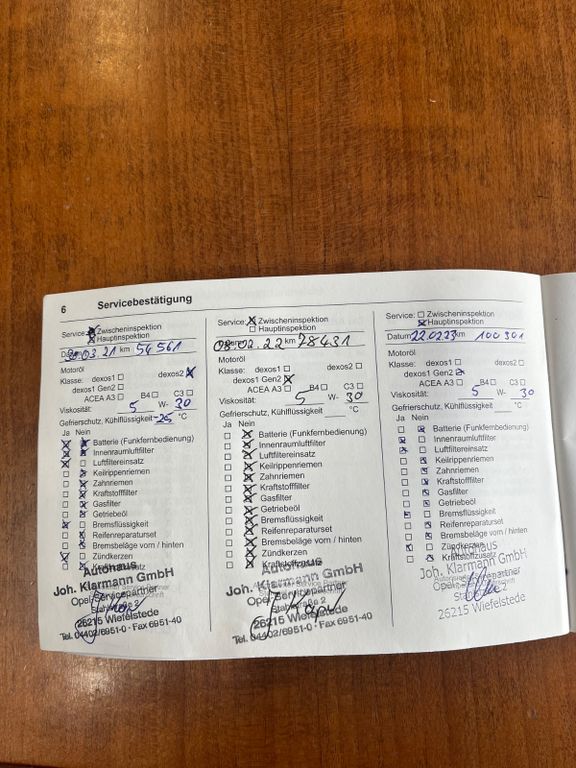 6 Servicebestätigung
Service: Zwischeninspektion
Hauptinspektion
30.03.21 km 54 561
Motoröl
Klasse: dexos1 dexos2
dexos1 Gen2
ACEA A3 B4 C3
Viskosität: 5 W- 30
Gefrierschutz, Kühlflüssigkeit -25 °C
Ja Nein
Batterie (Funkfernbedienung)
Innenraumluftfilter
Luftfiltereinsatz
Keilrippenriemen
Zahnriemen
Kraftstofffilter
Gasfilter
Getriebeöl
Bremsflüssigkeit
Reifenreparaturset
Bremsbeläge vorn / hinten
Zündkerzen
Autohaus
Joh. Klarmann GmbH
Opel Servicepartner
26215 Wiefelstede
Tel. 04402/6951-0 · Fax 6951-40
Service: Zwischeninspektion
Hauptinspektion
08.02.22 km 78431
Motoröl
Klasse: dexos1 dexos2
dexos1 Gen2
ACEA A3 B4 C3
Viskosität: 5 W- 30
Gefrierschutz, Kühlflüssigkeit °C
Ja Nein
Batterie (Funkfernbedienung)
Innenraumluftfilter
Luftfiltereinsatz
Keilrippenriemen
Zahnriemen
Kraftstofffilter
Gasfilter
Getriebeöl
Bremsflüssigkeit
Reifenreparaturset
Bremsbeläge vorn / hinten
Zündkerzen
Kraftstoffzusatz
Autohaus
Joh. Klarmann GmbH
Opel Servicepartner
26215 Wiefelstede
Tel. 04402/6951-0 · Fax 6951-40
Service: Zwischeninspektion
Hauptinspektion
Datum 22.02.23 km 100 301
Motoröl
Klasse: dexos1 dexos2
dexos1 Gen2
ACEA A3 B4 C3
Viskosität: 5 W- 30
Gefrierschutz, Kühlflüssigkeit °C
Ja Nein
Batterie (Funkfernbedienung)
Innenraumluftfilter
Luftfiltereinsatz
Keilrippenriemen
Zahnriemen
Kraftstofffilter
Gasfilter
Getriebeöl
Bremsflüssigkeit
Reifenreparaturset
Bremsbeläge vorn / hinten
Zündkerzen
Kraftstoffzusatz
Autohaus
Joh. Klarmann GmbH
26215 Wiefelstede